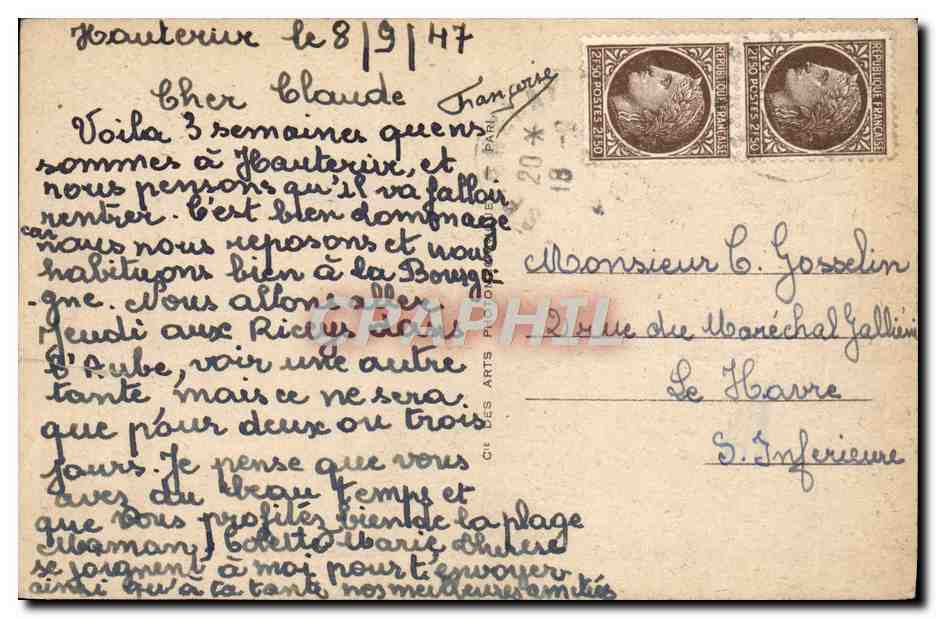 Hauteriv le 8/9/47
Cher Claude
Françoise
Voila 3 semaines que ns
sommes à Hauteriv, et
nous pensons qu'il va falloir
rentrer. C'est bien dommage
car nous nous reposons et nous
habituons bien à la Bourgo-
-gne. Nous allons aller
Jeudi aux Riceys dans
l'Aube, voir une autre
tante, mais ce ne sera
que pour deux ou trois
jours. Je pense que vous
avez du beau temps et
que vous profitez bien de la plage
Maman, Colette Marie therese
se joignent à moi pour t'envoyer
ainsi qu'à ta tante nos meilleures amitiés
CIE DES ARTS PHOTOMECANIQUES PARIS
20 *
18 -9
REPUBLIQUE FRANÇAISE
2F50 POSTES 2F50
REPUBLIQUE FRANÇAISE
2F50 POSTES 2F50
Monsieur C. Gosselin
2 rue du Maréchal Galliéni
Le Havre
S. Inferieure
CPAPHIL